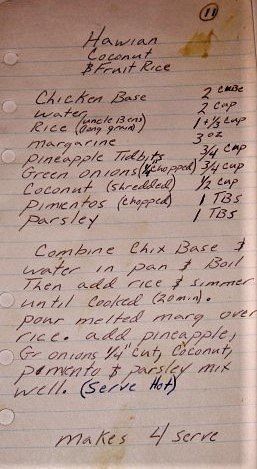 11
Hawian
Coconut
& Fruit Rice
Chicken Base 2 cube
water 2 cup
Rice (uncle Bens) (long grain) 1 + 1/2 cup
margarine 3 oz
pineapple Tidbits 3/4 cup
Green onions (1/4" chopped) 3/4 cup
Coconut (shredded) 1/2 cup
pimentos (chopped) 1 TBS
parsley 1 TBS
Combine Chix Base &
water in pan & Boil
Then add rice & simmer
until cooked (20 min).
pour melted marg over
rice. add pineapple,
Gr onions 1/4" cut, coconut,
pimento & parsley mix
well. (Serve Hot)
makes 4 serve